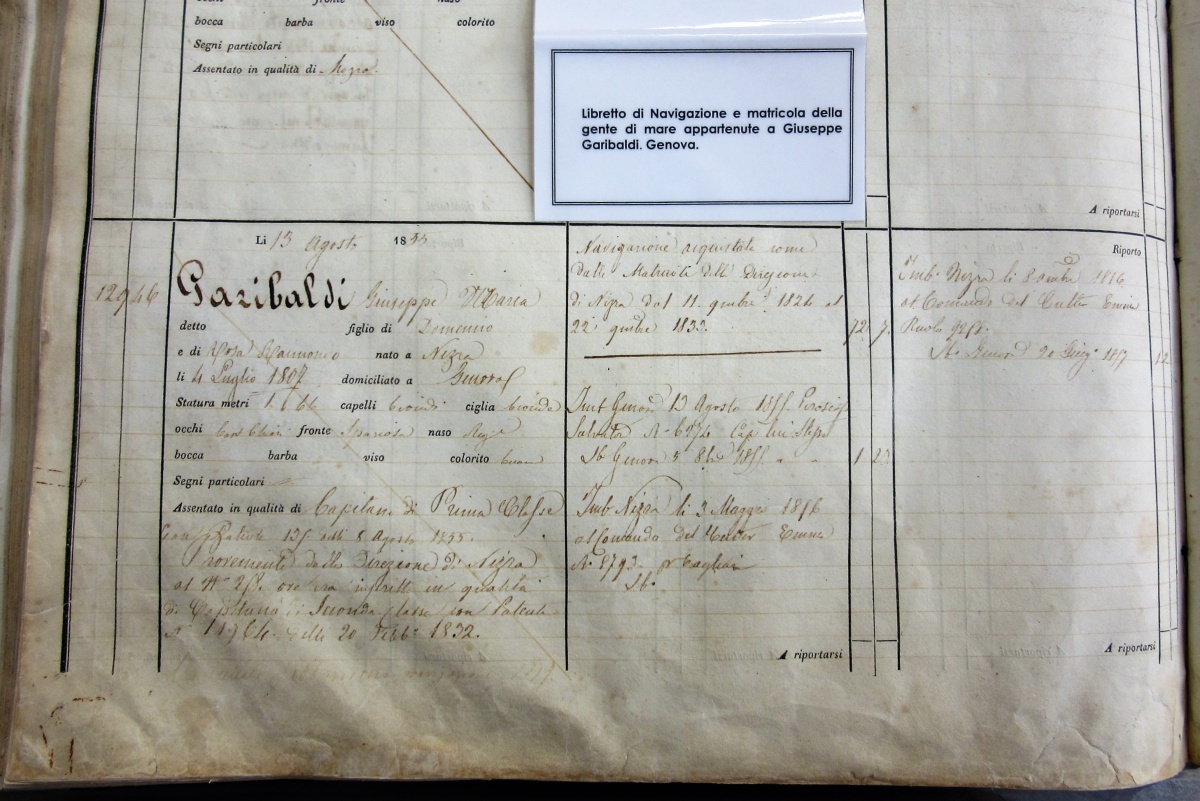 bocca barba viso colorito
Segni particolari
Assentato in qualità di Mozzo
Libretto di Navigazione e matricola della
gente di mare appartenute a Giuseppe
Garibaldi. Genova.
A riportarsi
Li 13 Agosto 1855
12946
Garibaldi Giuseppe Maria
detto figlio di Domenico
e di Rosa Raimondo nato a Nizza
li 4 Luglio 1807 domiciliato a Genova
Statura metri 1.6 66 capelli biondi ciglia bionde
occhi fronte Spaziosa naso
bocca barba viso colorito
Segni particolari
Assentato in qualità di Capitano di Prima Classe
Agosto 1855.
Proveniente dalla Direzione di Nizza
al N° ove era inscritto in qualità
di Capitano di Seconda classe con Patente
delli 20 Febb° 1832.
Navigazione acquistata come
dalla Matricola della Direzione
di Nizza dal 11 9mbre 1824 al
22 9mbre 1833.
72 7
Imb. Genova 13 Agosto 1855
Sb. Genova 5 1855
1 23
Imb. Nizza li 3 Maggio 1856
al Comando del Cutter Emma
N. 2793 pr Cagliari
Sb.
A riportarsi
Riporto
Imb. Nizza li 1856
al Comando del Cutter Emma
Ruolo
Sb. Genova 20 1857
12
A riportarsi